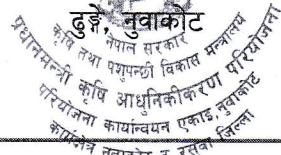 ढुङ्गे, नुवाकोट
नेपाल सरकार
कृषि तथा पशुपन्छी विकास मन्त्रालय
प्रधानमन्त्री कृषि आधुनिकीकरण परियोजना
परियोजना कार्यान्वयन एकाइ, नुवाकोट
कार्यक्षेत्र नुवाकोट र रसुवा जिल्ला